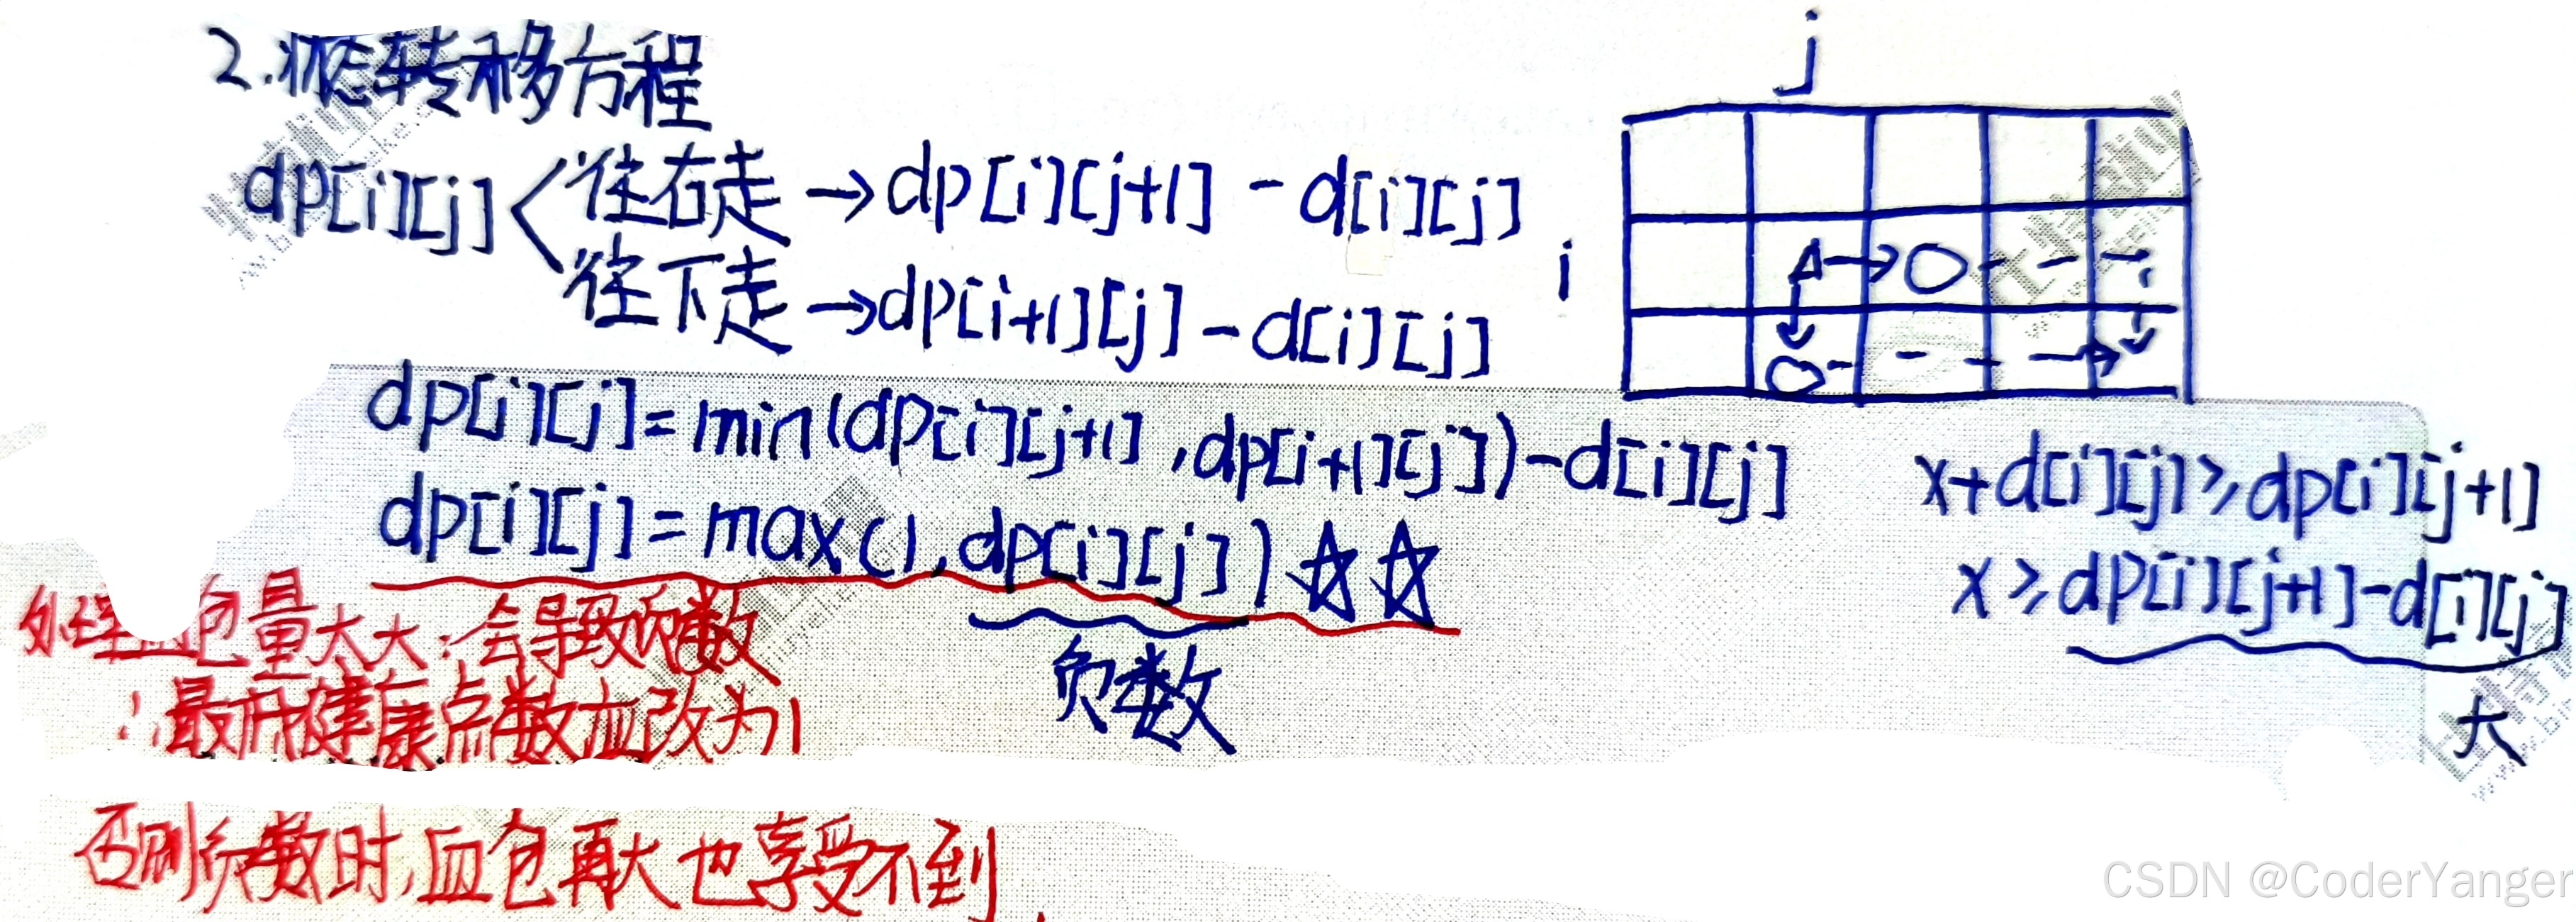 2.状态转移方程
j
dp[i][j] < 往右走 → dp[i][j+1] - d[i][j]
往下走 → dp[i+1][j] - d[i][j]
i
dp[i][j] = min(dp[i][j+1], dp[i+1][j]) - d[i][j]
dp[i][j] = max(1, dp[i][j]) ☆☆
x+d[i][j] ≥ dp[i][j+1]
x ≥ dp[i][j+1] - d[i][j]
大
负数
处理血包量太大:会导致负数
∴最低健康点数应改为1
否则负数时,血包再大也享受不到
CSDN @CoderYanger